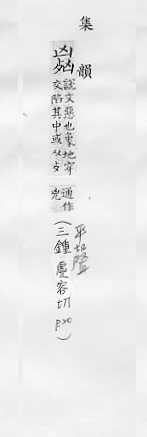 集韻
凶𣧑
說文惡也象地穿
交陷其中或从歹
通作
兇
(三鍾 虛容切 P20)
平聲